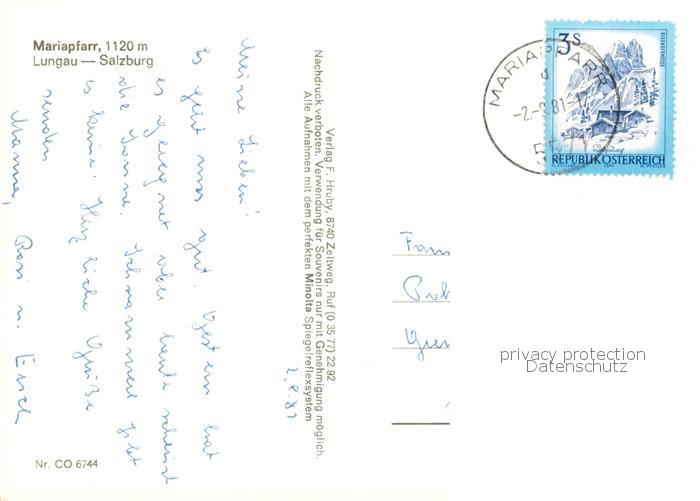 Mariapfarr, 1120 m
Lungau — Salzburg
Meine Lieben!
Es geht uns gut. Gestern hat
es geregnet aber heute scheint
die Sonne. Schwammerl gibt
es keine. Herzliche Grüße
senden
Mamma, Rosi u. Erich
2.9.81
Verlag F. Hruby, 8740 Zeltweg, Ruf (0 35 77) 22 92
Nachdruck verboten. Verwendung für Souvenirs nur mit Genehmigung möglich.
Alle Aufnahmen mit dem perfekten Minolta Spiegelreflexsystem
Nr. CO 6744
MARIAPFARR
3 S
BISCHOFSMÜTZE
Salzburg
REPUBLIK ÖSTERREICH
Fam
privacy protection
Datenschutz